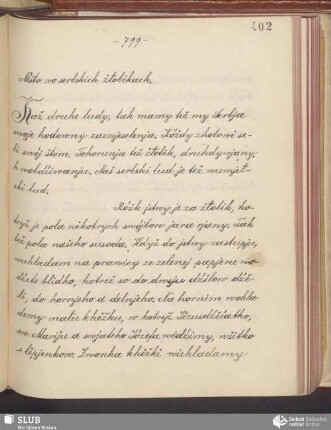 402
- 799 -
Něšto wo serbskich žłobikach.
Kaž druhe ludy, tak mamy tež my Serbja
swoje hodowny zaznjesolenja. Kóždy zhotowi se-
bi swój štom. Tohorunja tež žłobik, druhdy rjany,
k wobdźiwanju. Naš serbski lud je tež wumjeł-
ski lud.
Róžk jstwy je za žłobik, ko-
tryž je pola někotrych swójbow jara rjany. Tak
tež pola našeho susoda. Hdyž do jstwy zastupju,
wuhladam na prawicy ze zelenej papjeru wo-
blidko, kotrež so do dweju dźělow dźě-
li, do hornjeho a delnjeho. Na hornim wohla-
damy małe khěžku, w kotrejž Jězusdźěćatko,
sw. Mariju a swjateho Józefa widźimy, wšitko
z lěpjenkow. Zwonka khěžki wuhladamy
SLUB
Wir führen Wissen.